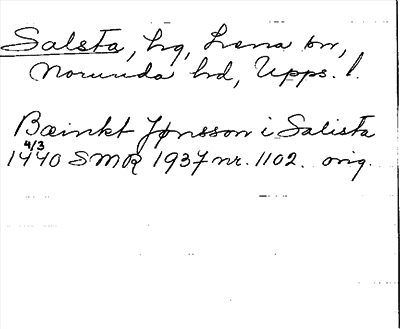 Salsta, hg, Lena sn,
Norunda hd, Upps. l.
Bæinkt Jønsson i Salista
4/3
1440 SMR 1937 nr. 1102. orig.